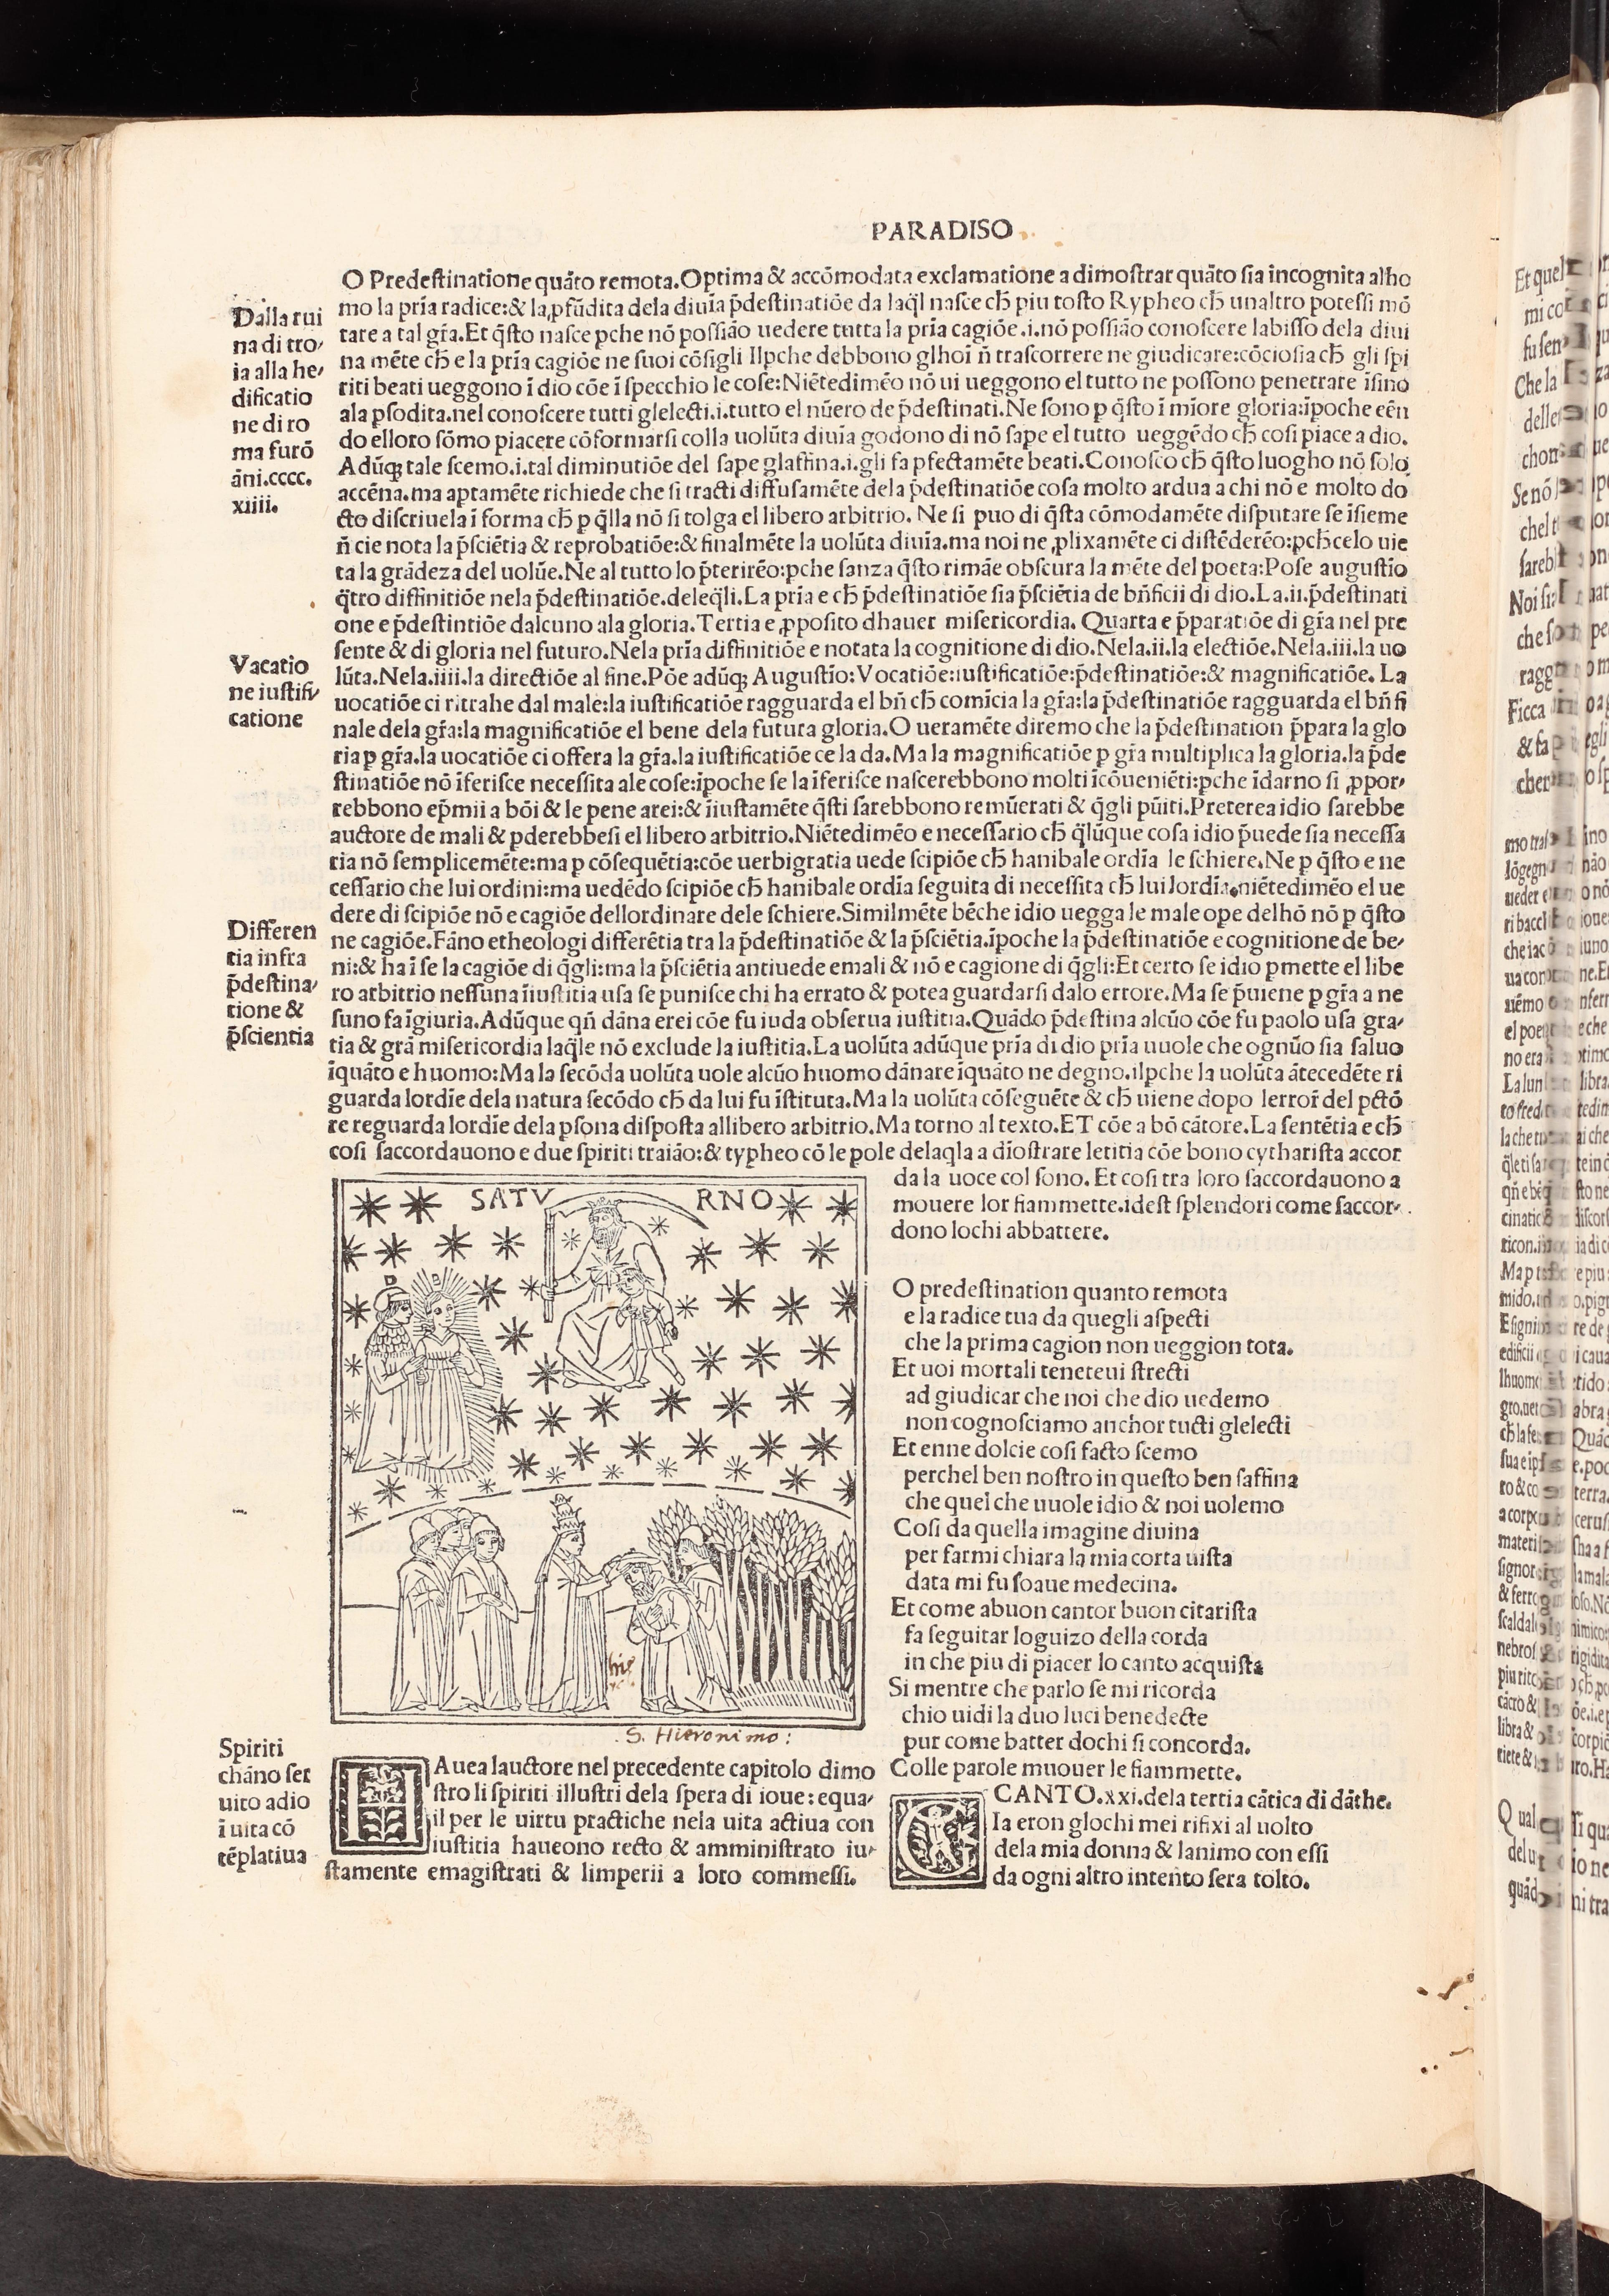 PARADISO
O Predestinatione quāto remota.Optima & accōmodata exclamatione a dimostrar quāto sia incognita alho
mo la prīa radice:& la ꝓfūdita dela diuīa p̄destinatiōe da laq̄l nasce ch̄ piu tosto Rypheo ch̄ unaltro potessi mō
tare a tal gr̄a.Et q̄sto nasce pche nō possiāo uedere tutta la prīa cagiōe.i.nō possiāo conoscere labisso dela diui
na mēte ch̄ e la prīa cagiōe ne suoi cōsigli Ilpche debbono glhoī n̄ trascorrere ne giudicare:cōciosia ch̄ gli spi
riti beati ueggono ī dio cōe ī specchio le cose:Niētedimēo nō ui ueggono el tutto ne possono penetrare īsino
ala psodita.nel conoscere tutti glelecti.i.tutto el nūero de p̄destinati.Ne sono p q̄sto ī mīore gloria:īpoche eēn
do elloro sōmo piacere cōformarsi colla uolūta diuīa godono di nō sape el tutto ueggēdo ch̄ cosi piace a dio.
Adūqꝫ tale scemo.i.tal diminutiōe del sape glaffina.i.gli fa pfectamēte beati.Conosco ch̄ q̄sto luogho nō solo
accēna.ma aptamēte richiede che si tracti diffusamēte dela p̄destinatiōe cosa molto ardua a chi nō e molto do
cto discriuela ī forma ch̄ p q̄lla nō si tolga el libero arbitrio. Ne si puo di q̄sta cōmodamēte disputare se īsieme
n̄ cie nota la p̄sciētia & reprobatiōe:& finalmēte la uolūta diuīa.ma noi ne ꝓlixamēte ci distēderēo:pch̄ celo uie
ta la grādeza del uolūe.Ne al tutto lo p̄terirēo:pche sanza q̄sto rimāe obscura la mēte del poeta:Pose augustīo
q̄tro diffinitiōe nela p̄destinatiōe.deleq̄li.La prīa e ch̄ p̄destinatiōe sia p̄sciētia de bn̄ficii di dio.La.ii.p̄destinati
one e p̄destintiōe dalcuno ala gloria.Tertia e ꝓposito dhauer misericordia. Quarta e p̄paratiōe di gr̄a nel pre
sente & di gloria nel futuro.Nela prīa diffinitiōe e notata la cognitione di dio.Nela.ii.la electiōe.Nela.iii.la uo
lūta.Nela.iiii.la directiōe al fine.Pōe adūqꝫ Augustīo:Vocatiōe:iustificatiōe:p̄destinatiōe:& magnificatiōe. La
uocatiōe ci ritrahe dal male:la iustificatiōe ragguarda el bn̄ ch̄ comīcia la gr̄a:la p̄destinatiōe ragguarda el bn̄ fi
nale dela gr̄a:la magnificatiōe el bene dela futura gloria.O ueramēte diremo che la p̄destination p̄para la glo
ria p gr̄a.la uocatiōe ci offera la gr̄a.la iustificatiōe ce la da.Ma la magnificatiōe p gr̄a multiplica la gloria.la p̄de
stinatiōe nō īferisce necessita ale cose:īpoche se la īferisce nascerebbono molti īcōueniēti:pche īdarno si ꝓpor-
rebbono ep̄mii a bōi & le pene arei:& īiustamēte q̄sti sarebbono remūerati & q̄gli pūiti.Preterea idio sarebbe
auctore de mali & pderebbesi el libero arbitrio.Niētedimēo e necessario ch̄ q̄lūque cosa idio p̄uede sia necessa
ria nō semplicemēte:ma p cōsequētia:cōe uerbigratia uede scipiōe ch̄ hanibale ordīa le schiere.Ne p q̄sto e ne
cessario che lui ordini:ma uedēdo scipiōe ch̄ hanibale ordīa seguita di necessita ch̄ lui lordīa.niētedimēo el ue
dere di scipiōe nō e cagiōe dellordinare dele schiere.Similmēte bēche idio uegga le male ope delhō nō p q̄sto
ne cagiōe.Fāno etheologi differētia tra la p̄destinatiōe & la p̄sciētia.īpoche la p̄destinatiōe e cognitione de be-
ni:& ha ī se la cagiōe di q̄gli:ma la p̄sciētia antiuede emali & nō e cagione di q̄gli:Et certo se idio pmette el libe
ro arbitrio nessuna īiustitia usa se punisce chi ha errato & potea guardarsi dalo errore.Ma se p̄uiene p gr̄a a ne
suno fa īgiuria.Adūque qn̄ dāna erei cōe fu iuda obserua iustitia.Quādo p̄destina alcūo cōe fu paolo usa gra-
tia & grā misericordia laq̄le nō exclude la iustitia.La uolūta adūque prīa di dio prīa uuole che ognūo sia saluo
īquāto e huomo:Ma la secōda uolūta uole alcūo huomo dānare īquāto ne degno.ilpche la uolūta ātecedēte ri
guarda lordīe dela natura secōdo ch̄ da lui fu īstituta.Ma la uolūta cōseguēte & ch̄ uiene dopo lerror̄ del pctō
re reguarda lordīe dela psona disposta allibero arbitrio.Ma torno al texto.ET cōe a bō cātore.La sentētia e ch̄
cosi saccordauono e due spiriti traiāo:& typheo cō le pole delaqla a dīostrare letitia cōe bono cytharista accor
da la uoce col sono. Et cosi tra loro saccordauono a
mouere lor fiammette.idest splendori come saccor-
dono lochi abbattere.
Dalla rui
na di tro-
ia alla he-
dificatio
ne di ro
ma furō
āni.cccc.
xiiii.
Vacatio
ne iustifi-
catione
Differen
tia infra
p̄destina-
tione &
p̄scientia
SATVRNO
D
B
hie
S. Hieronimo:
O predestination quanto remota
e la radice tua da quegli aspecti
che la prima cagion non ueggion tota.
Et uoi mortali teneteui strecti
ad giudicar che noi che dio uedemo
non cognosciamo anchor tucti glelecti
Et enne dolcie cosi facto scemo
perchel ben nostro in questo ben saffina
che quel che uuole idio & noi uolemo
Cosi da quella imagine diuina
per farmi chiara la mia corta uista
data mi fu soaue medecina.
Et come abuon cantor buon citarista
fa seguitar loguizo della corda
in che piu di piacer lo canto acquista
Si mentre che parlo se mi ricorda
chio uidi la duo luci benedecte
pur come batter dochi si concorda.
Colle parole muouer le fiammette.
Spiriti
chāno ser
uito adio
ī uita cō
tēplatiua
HAuea lauctore nel precedente capitolo dimo
stro li spiriti illustri dela spera di ioue: equa-
il per le uirtu practiche nela uita actiua con
iustitia haueono recto & amministrato iu-
stamente emagistrati & limperii a loro commessi.
CANTO.xxi.dela tertia cātica di dāthe.
GIa eron glochi mei rifixi al uolto
dela mia donna & lanimo con essi
da ogni altro intento sera tolto.